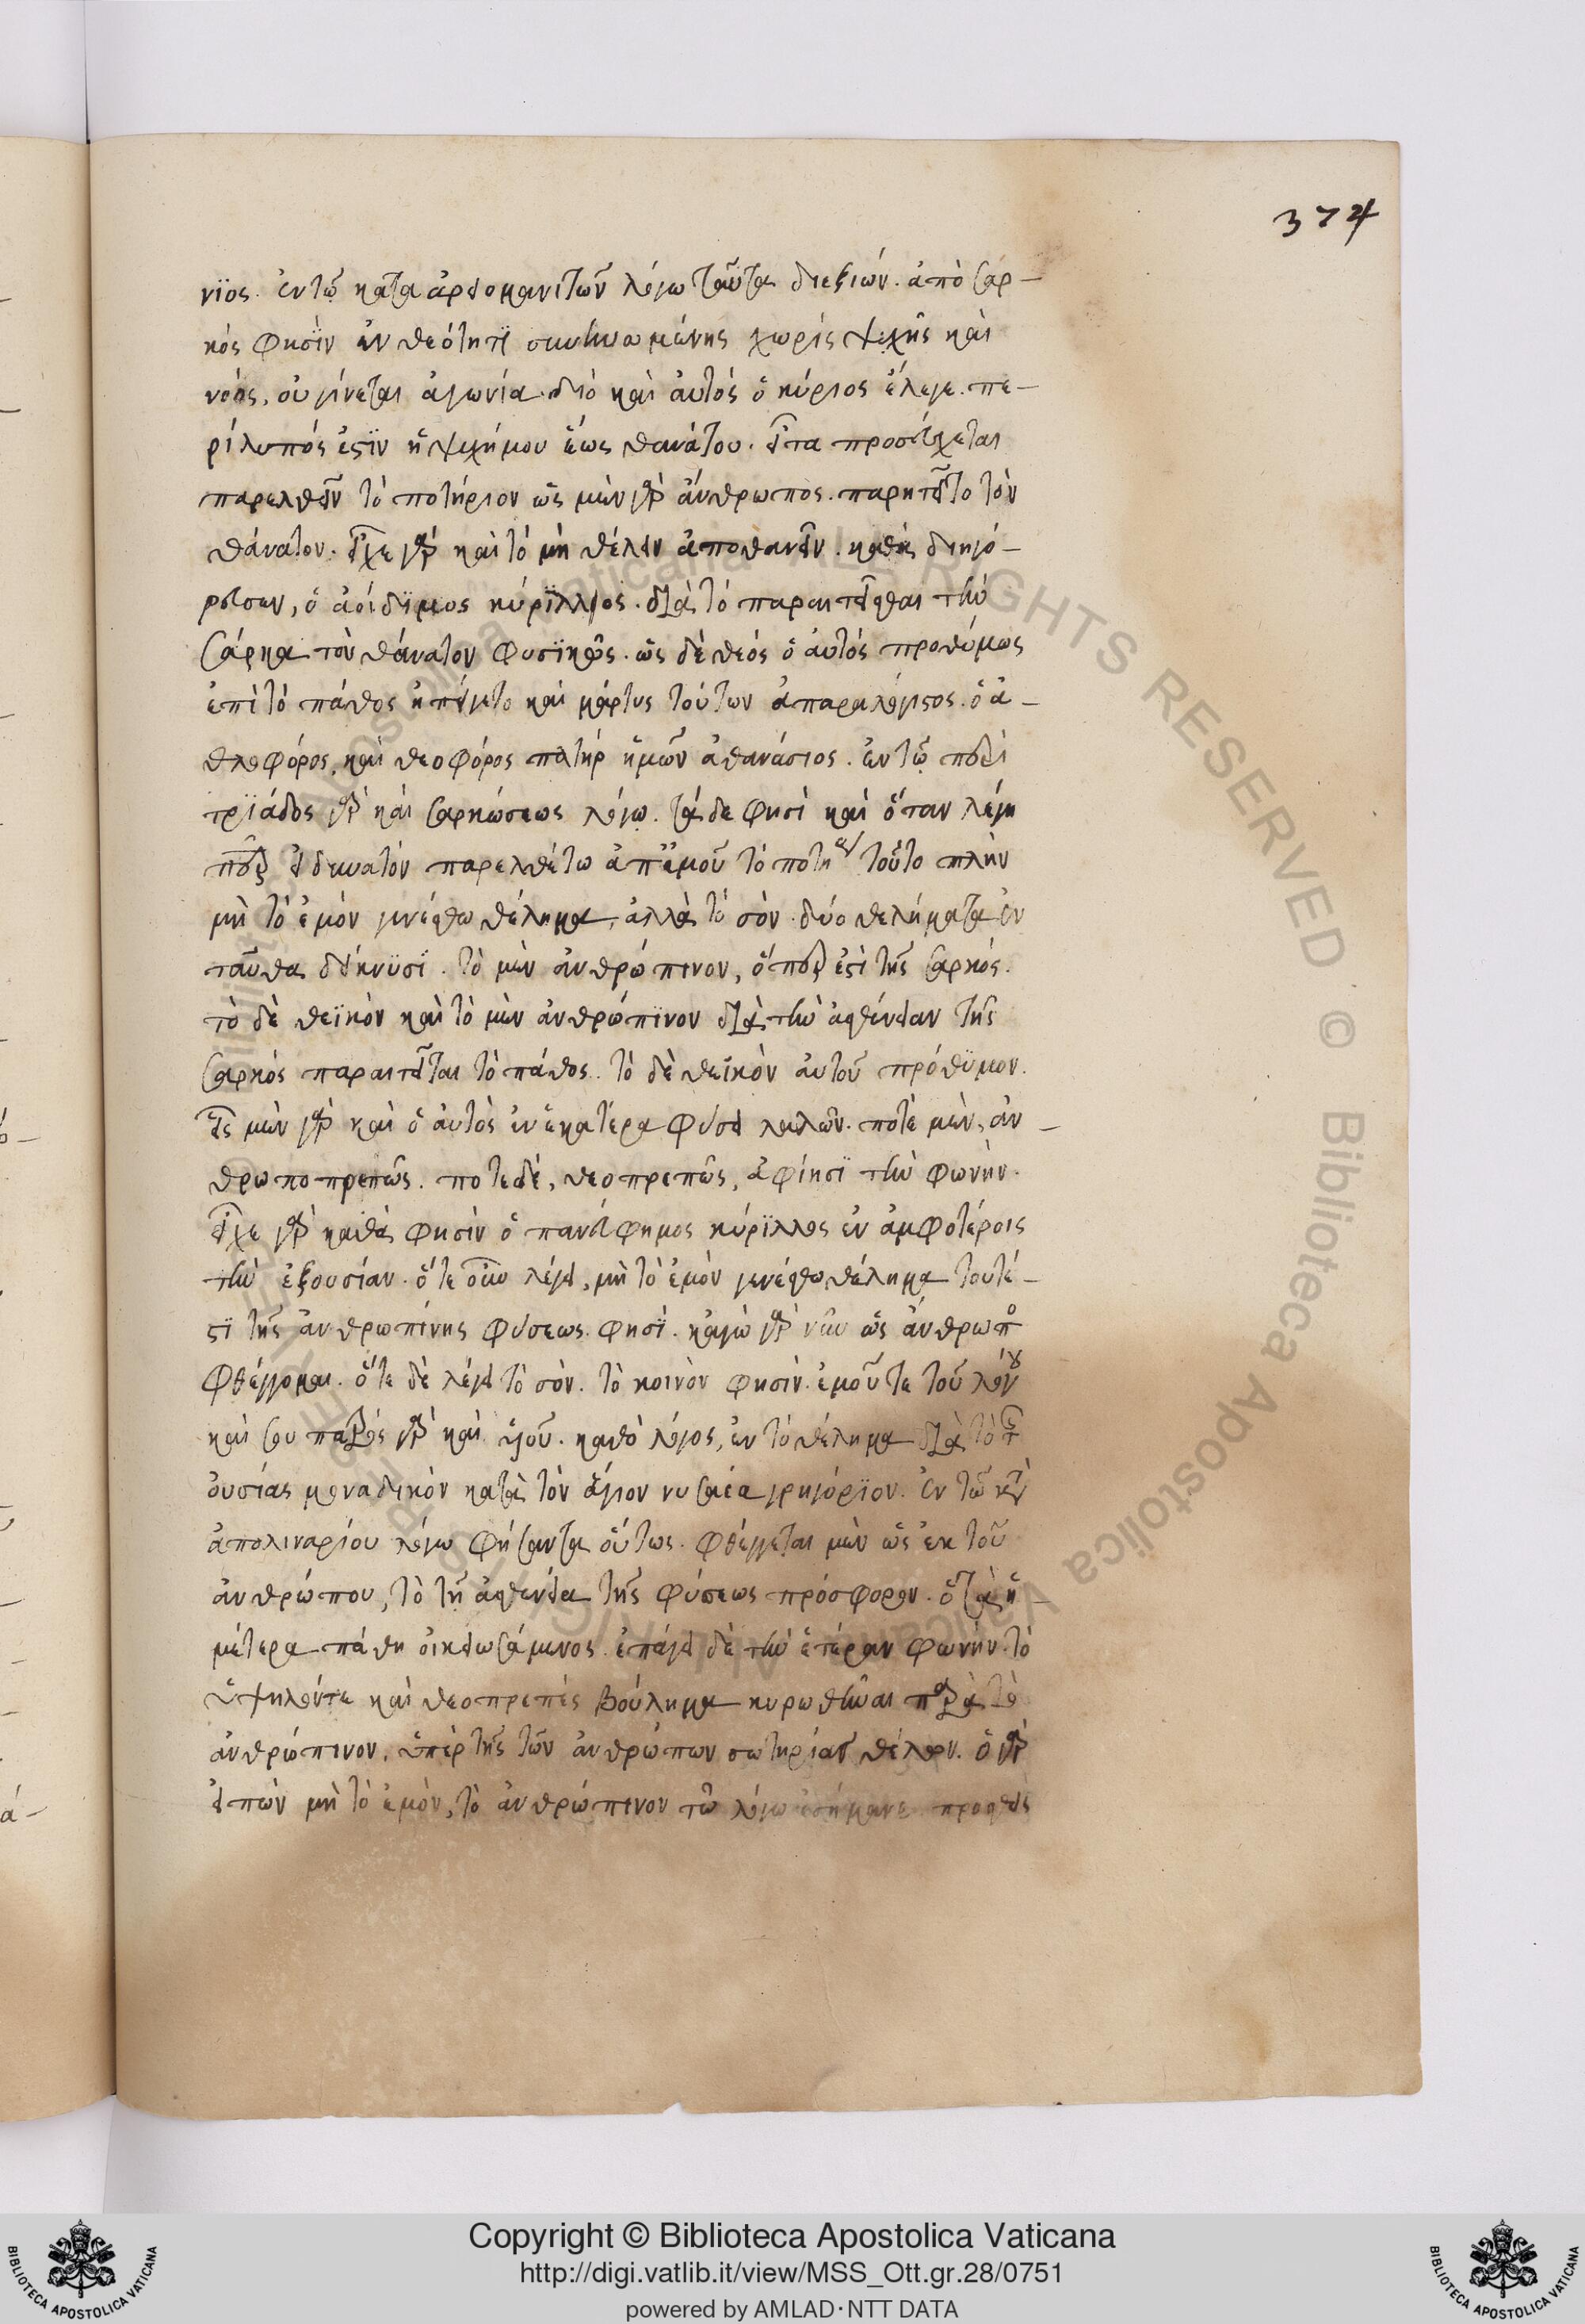 374
νϊος. ἐν τῷ κατα ἀρειομανιτῶν λόγω ταῦτα διεξιών. ἀπὸ σαρ-
κός φησϊν ἐν θεότητϊ συνηνωμένης χωρίς ψυχῆς καὶ
νοός, οὐ γίνεται ἀγωνία. διὸ καὶ ἀυτός ὁ κύριος ἔλεγε. πε-
ρίλυπός ἐστϊν ἡ ψυχή μου ἕως θανάτου. εἶτα προσεύχεται
παρελθεῖν τὸ ποτήριον ὡς μὲν γὰρ ἄνθρωπος. παρητεῖτο τὸν
θάνατον. εἶχε γὰρ καὶ τό μὴ θέλειν ἀποθανεῖν. καθὰ διηγό-
ρευσεν, ὁ ἀοίδϊμος κύρϊλλος. διὰ τό παραιτεῖσθαι τὴν
σάρκα τὸν θάνατον φυσϊκῶς. ὡς δὲ θεός ὁ ἀυτός προθύμως
ἐπὶ τό πάθος ἠπείγετο καὶ μάρτυς τούτων ἀπαραλόγιστος. ὁ ἀ-
θλοφόρος, καὶ θεοφόρος πατήρ ἡμῶν ἀθανάσιος. ἐν τῷ περὶ
τρϊάδος γὰρ καὶ σαρκώσεως λόγω. τάδε φησὶ καὶ ὅταν λέγη
περ εἰ δυνατόν παρελθέτω ἀπ ἐμοῦ τό ποτηρ τοῦτο πλὴν
μὴ τὸ ἐμὸν γινέσθω θέλημα, ἀλλὰ τό σὸν. δύο θελήματα ἐν
ταῦθα δείκνϋσϊ. τὸ μὲν ἀνθρώπινον, ὅπερ ἐστὶ τῆς σαρκός.
τὸ δὲ θεϊκὸν καὶ τὸ μὲν ἀνθρώπϊνον διὰ τὴν ἀσθένειαν τῆς
σαρκός παραιτεῖται τὸ πάθος. τὸ δὲ θεϊκὸν ἀυτοῦ πρόθϋμον.
εἷς μὲν γὰρ καὶ ὁ ἀυτὸς ἐν ἑκατέρα φύσει λαλῶν. ποτὲ μὲν, ἀν-
θρωποπρεπῶς. ποτε δέ, θεοπρεπῶς, ἀφίησϊ τὴν φωνὴν.
εἶχε γὰρ καθὰ φησὶν ὁ πανεύφημος κύρϊλλος ἐν ἀμφοτέροις
τὴν ἐξουσίαν. ὅτε οὖν λέγει, μὴ τὸ ἐμὸν γενέσθω θέλημα τουτέ-
στϊ τῆς ἀνθρωπίνης φύσεως. φησϊ. κἀγὼ γὰρ νῦν ὡς ἄνθρωπο
φθέγγομαι. ὅτε δὲ λέγει τὸ σὸν. τὸ κοινὸν φησὶν. ἐμοῦ τε τοῦ λόγου
καὶ σου πατρός γὰρ καὶ υἱοῦ. καθὸ λόγος, ἐν τὸ θέλημα διὰ τὸ τῆς
ὀυσίας μοναδικὸν κατὰ τὸν ἅγιον νυσαέα γρηγόρϊον. ἐν τῷ κατὰ
ἀπολιναρίου λόγω φήσαντα οὕτως. φθέγγεται μὲν ὡς ἐκ τοῦ
ἀνθρώπου, τὸ τῇ ἀσθενεία τῆς φύσεως πρόσφορον. ὁ τὰ ἡ-
μέτερα πάθη ὀικειωσάμενος. ἐπάγει δὲ τὴν ἑτέραν φωνὴν. τὸ
ὑψηλόντε καὶ θεοπρεπές βούλημα κυρωθῆναι παρὰ τὸ
ἀνθρώπινον, ὑπὲρ τῆς τῶν ἀνθρώπων σωτηρίας θέλων. ὁ γὰρ
εἰπὼν μὴ τὸ ἐμὸν, τὸ ἀνθρώπινον τῷ λόγω ἐσήμανε προσθεὶς
Copyright © Biblioteca Apostolica Vaticana
http://digi.vatlib.it/view/MSS_Ott.gr.28/0751
powered by AMLAD·NTT DATA